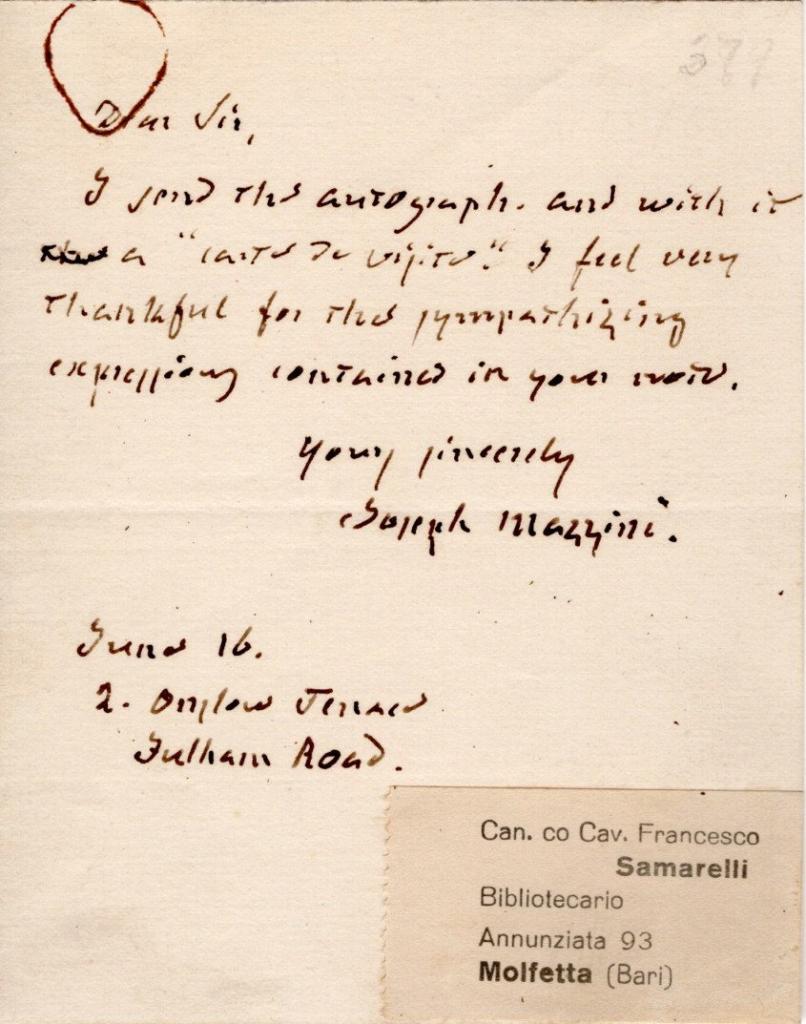 Dear Sir,
I send the autograph. and with it
a "carte de visite". I feel very
thankful for the sympathizing
expressions contained in your note.
Yours sincerely
Joseph Mazzini.
June 16.
2. Onslow Terrace
Fulham Road.
Can. co Cav. Francesco
Samarelli
Bibliotecario
Annunziata 93
Molfetta (Bari)